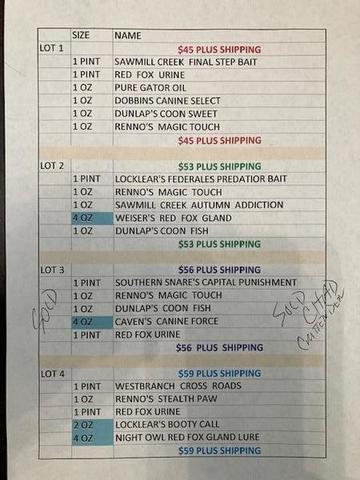 SIZE NAME
LOT 1 $45 PLUS SHIPPING
1 PINT SAWMILL CREEK FINAL STEP BAIT
1 PINT RED FOX URINE
1 OZ PURE GATOR OIL
1 OZ DOBBINS CANINE SELECT
1 OZ DUNLAP'S COON SWEET
1 OZ RENNO'S MAGIC TOUCH
$45 PLUS SHIPPING
LOT 2 $53 PLUS SHIPPING
1 PINT LOCKLEAR'S FEDERALES PREDATIOR BAIT
1 OZ RENNO'S MAGIC TOUCH
1 OZ SAWMILL CREEK AUTUMN ADDICTION
4 OZ WEISER'S RED FOX GLAND
1 OZ DUNLAP'S COON FISH
$53 PLUS SHIPPING
LOT 3 $56 PLUS SHIPPING
1 PINT SOUTHERN SNARE'S CAPITAL PUNISHMENT
1 OZ RENNO'S MAGIC TOUCH
1 OZ DUNLAP'S COON FISH
4 OZ CAVEN'S CANINE FORCE
1 PINT RED FOX URINE
$56 PLUS SHIPPING
SOLD
SOLD
CHAD
LOT 4 $59 PLUS SHIPPING
1 PINT WESTBRANCH CROSS ROADS
1 OZ RENNO'S STEALTH PAW
1 PINT RED FOX URINE
2 OZ LOCKLEAR'S BOOTY CALL
4 OZ NIGHT OWL RED FOX GLAND LURE
$59 PLUS SHIPPING